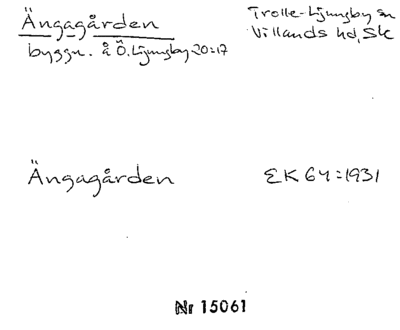 Ängagården
Trolle-Ljungby sn
Villands hd, Sk
byggn. å Ö. Ljungby 20:17
Ängagården
EK 64:1931
Nr 15061